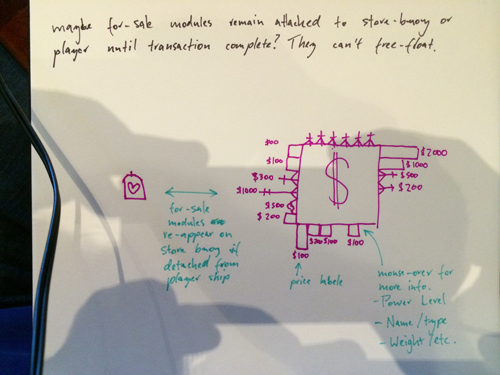 maybe for-sale modules remain attached to store-buoy or
player until transaction complete? They can't free-float.
$100
$300
$1000
$500
$200
$
$2000
$1000
$500
$200
for-sale
modules
re-appear on
store buoy if
detached from
player ship
$100
$200
$100
$100
price labels
mouse-over for
more info.
- Power Level
- Name/type
- Weight/etc.